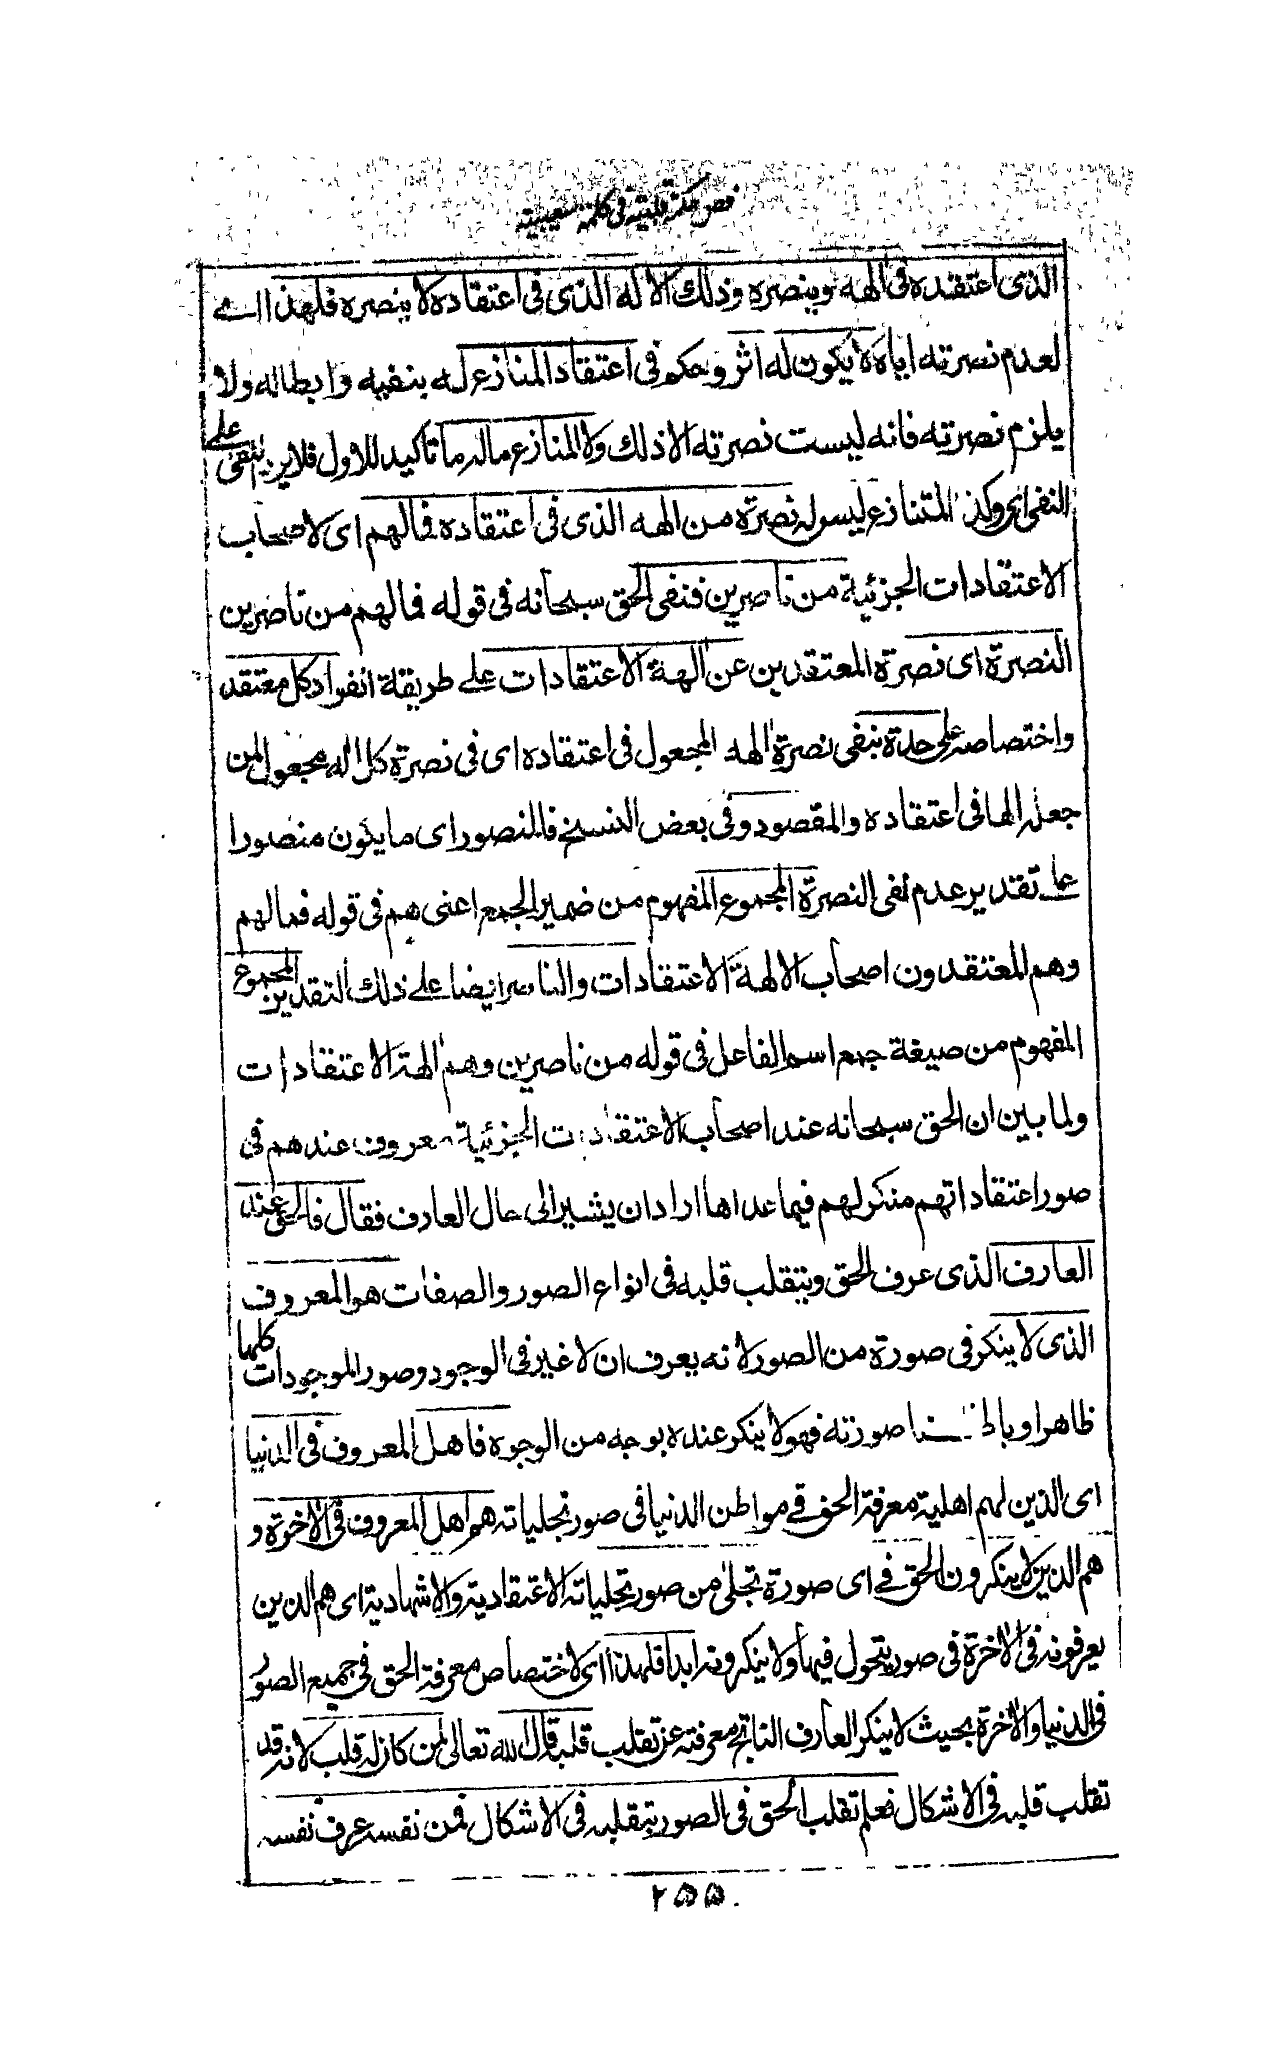 فص حكمة قلبية في كلمة شعيبية
الذى اعتقده فى الهه وينصره وذلك الاله الذى فى اعتقاده لا ينصره فلهذا اى
لعدم نصرته اياه لا يكون له اثر وحكم فى اعتقاد المنازع له بنفيه وابطاله ولا
يلزم نصرته فانه ليست نصرته الا ذلك ولا المنازع ماله ما تاكيد للاول فلا ينتقض على
النفى اى وكذا المتنازع ليس له نصرة من الهه الذى فى اعتقاده فما لهم اى لاصحاب
الاعتقادات الجزئية من ناصرين فنفى الحق سبحانه فى قوله فما لهم من ناصرين
النصرة اى نصرة المعتقدين عن الهة الاعتقادات على طريقة انفراد كل معتقد
واختصاصه على حدة بنفى نصرة الهه المجعول فى اعتقاده اى فى نصرة كل اله مجعول لمن
جعله الها فى اعتقاده والمقصود وفى بعض النسخ فالمنصور اى ما يكون منصورا
على تقدير عدم نفى النصرة المجموع المفهوم من ضمير الجمع اعنى هم فى قوله فما لهم
وهم المعتقدون اصحاب الالهة الاعتقادات والناصر ايضا على ذلك التقدير المجموع
المفهوم من صيغة جمع اسم الفاعل فى قوله من ناصرين وهم الهة الاعتقادات
ولما بين ان الحق سبحانه عند اصحاب الاعتقادات الجزئية معروف عندهم فى
صور اعتقاداتهم منكر لهم فيما عداها اراد ان يشير الى حال العارف فقال فالحق عند
العارف الذى عرف الحق ويتقلب قلبه فى انواع الصور والصفات هو المعروف
الذى لا ينكر فى صورة من الصور لانه يعرف ان لا غير فى الوجود وصور الموجودات كلها
ظاهرا وباطنا صورته فهو لا ينكر عنده بوجه من الوجوه فاهل المعروف فى الدنيا
اى الذين لهم اهلية معرفة الحق فى مواطن الدنيا فى صور تجلياته هم اهل المعروف فى الاخرة و
هم الذين لا ينكرون الحق فى اى صورة تجلى من صور تجلياته الاعتقادية والاشهادية اى هم الذين
يعرفونه فى الاخرة فى صور يتحول فيها ولا ينكرونه ابدا فلهذا اى لاختصاص معرفة الحق فى جميع الصور
فى الدنيا والاخرة بحيث لا ينكر العارف الناتج معرفته عن تقلب قلبه قال الله تعالى لمن كان له قلب لانه قد
تقلب قلبه فى الاشكال فعلم تقلب الحق فى الصور بتقلبه فى الاشكال فمن نفسه عرف نفسه
۲۵۵